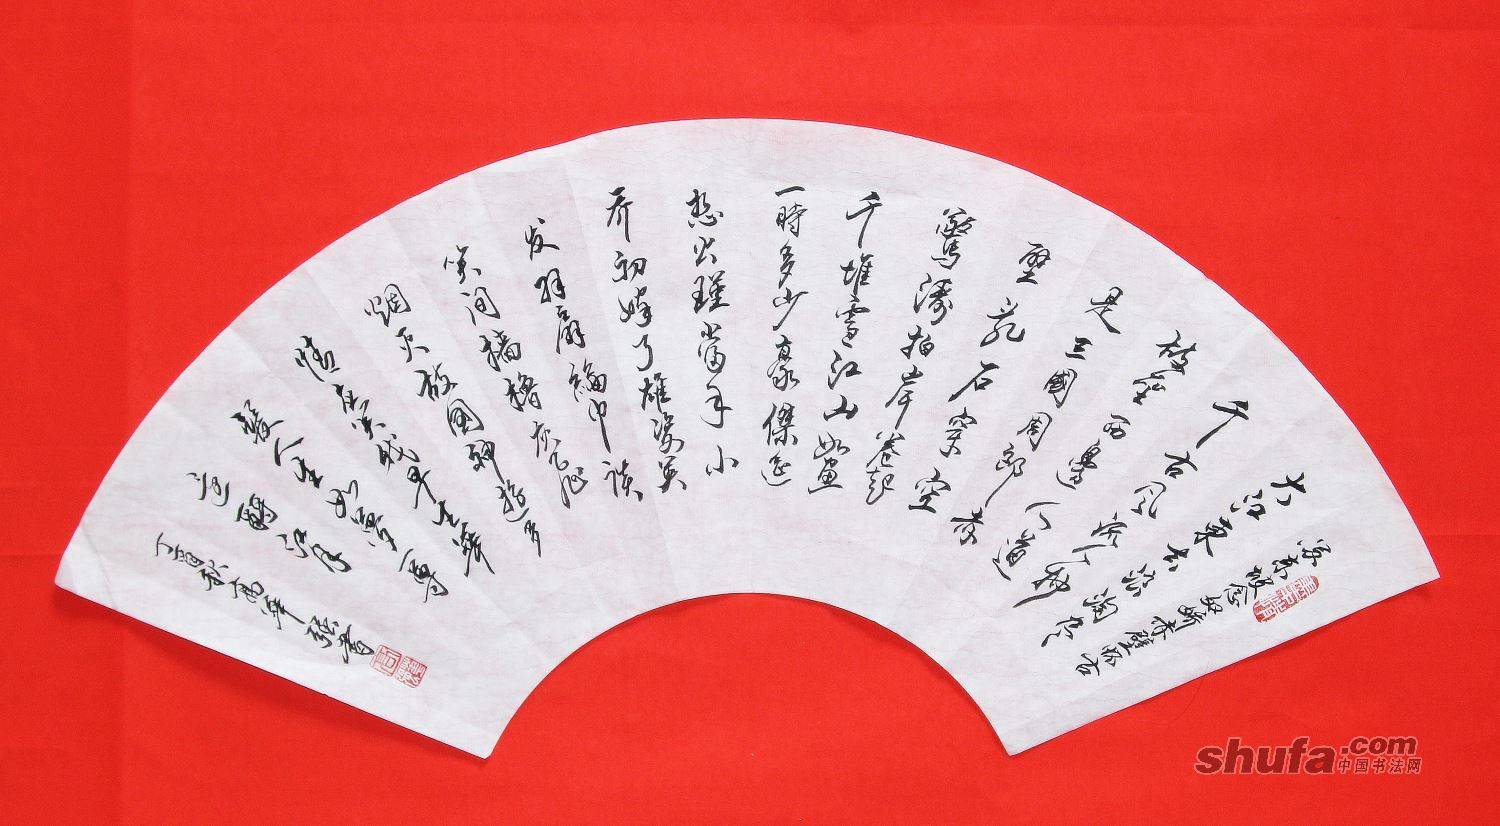 苏東坡念奴娇赤壁怀古
大江東去浪淘尽
千古风流人物
故垒西邊人道
是三國周郎赤
壁乱石穿空
驚濤拍岸卷起
千堆雪江山如畫
一時多少豪傑遥
想公瑾當年小
乔初嫁了雄姿英
发羽扇綸巾談
笑间樯櫓灰飞
烟灭故國神游多
情应笑我早生華
髮人生如夢一尊
还酹江月
丁酉秋
shufa.com
中国书法网